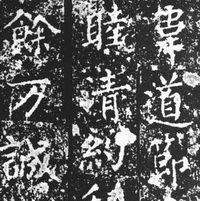 韋道節
睦清約
餘万誠